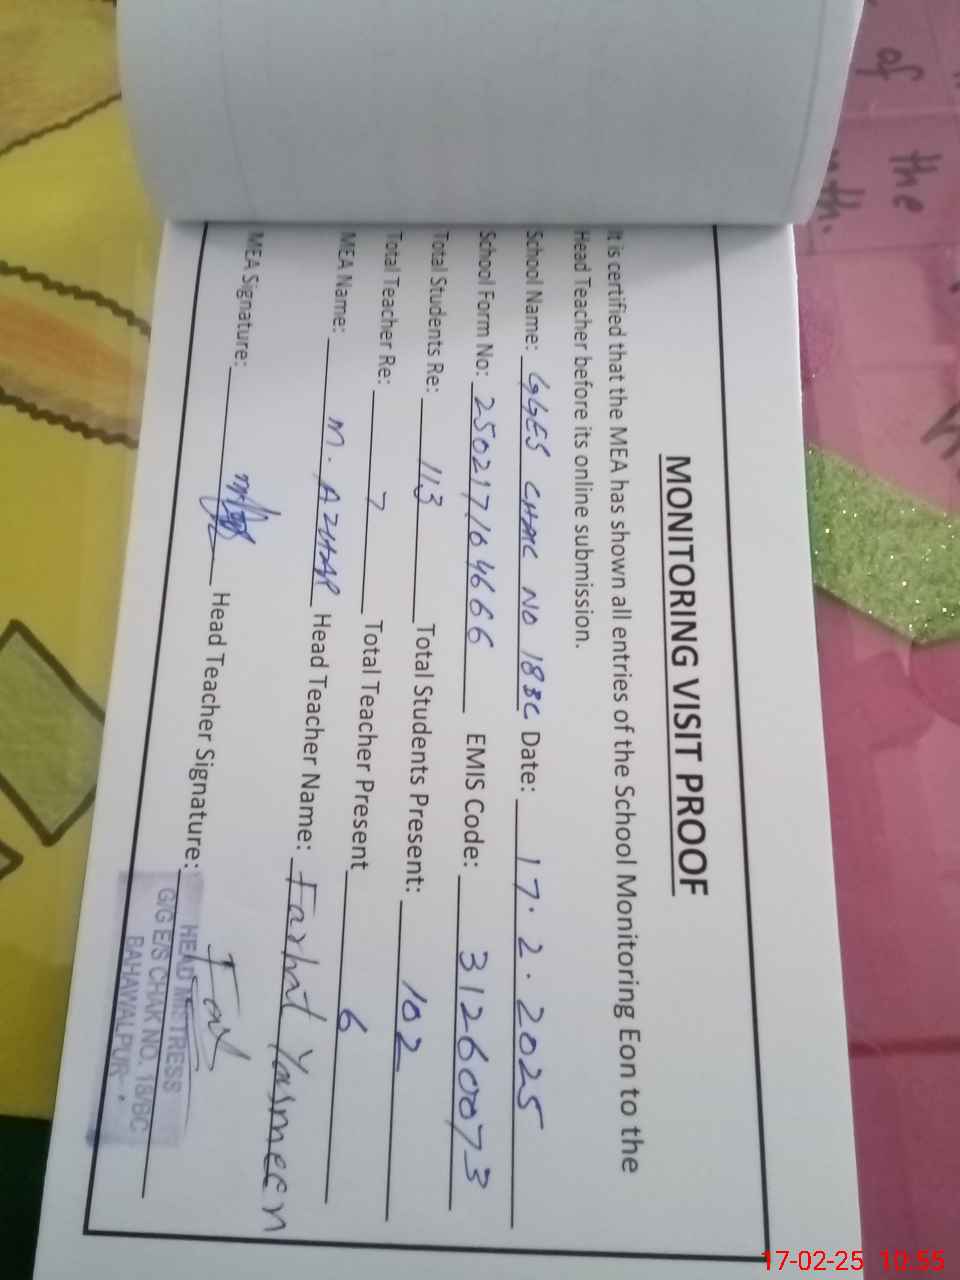 MONITORING VISIT PROOF
It is certified that the MEA has shown all entries of the School Monitoring Eon to the
Head Teacher before its online submission.
School Name: GGES CHAK NO 18BC Date: 17.2.2025
School Form No: 250217104666 EMIS Code: 31260073
Total Students Re: 113 Total Students Present: 102
Total Teacher Re: 7 Total Teacher Present 6
MEA Name: M. AZHAR Head Teacher Name: Farhat Yasmeen
MEA Signature: Head Teacher Signature:
HEAD MISTRESS
G/G E/S CHAK NO. 18/BC
BAHAWALPUR
of
the
17-02-25 10:55